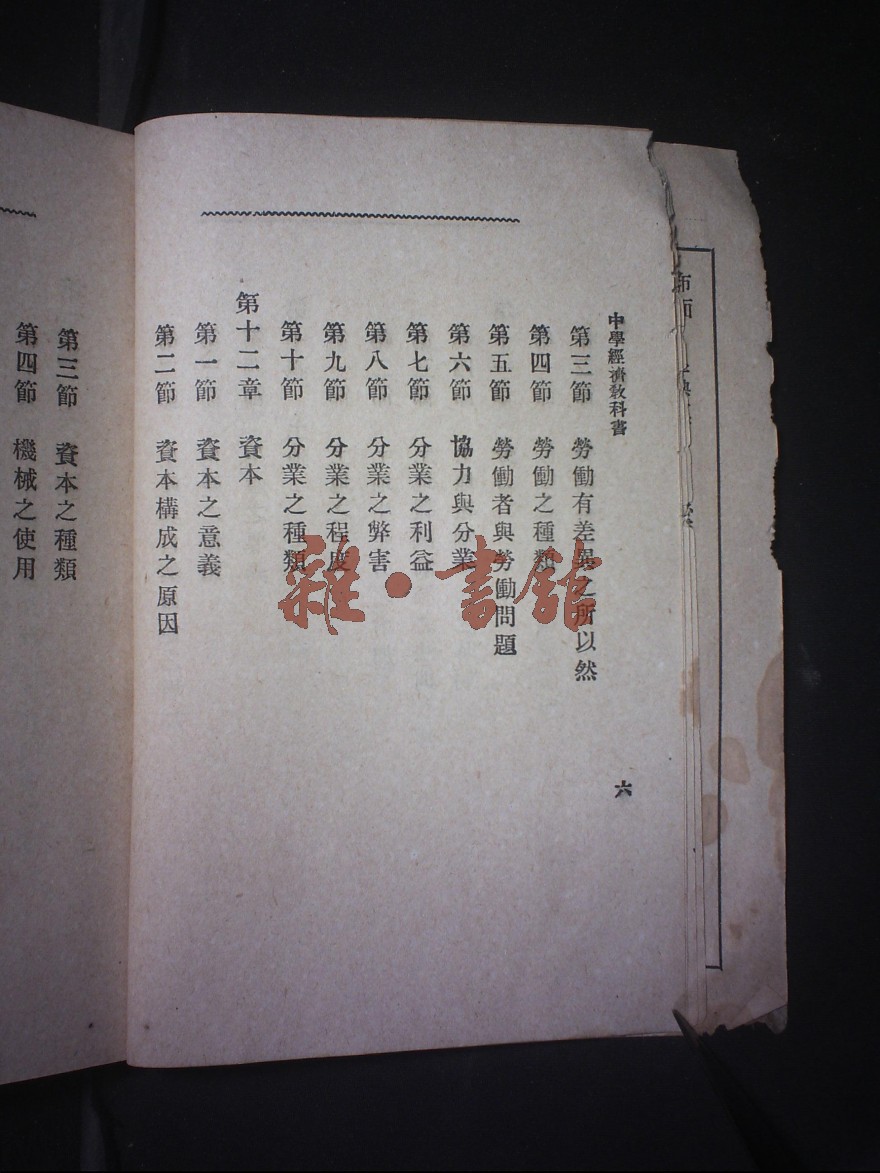 中學經濟教科書
六
第三節　勞働有差異之所以然
第四節　勞働之種類
第五節　勞働者與勞働問題
第六節　協力與分業
第七節　分業之利益
第八節　分業之弊害
第九節　分業之程度
第十節　分業之種類
第十二章　資本
第一節　資本之意義
第二節　資本構成之原因
第三節　資本之種類
第四節　機械之使用
雜·書館